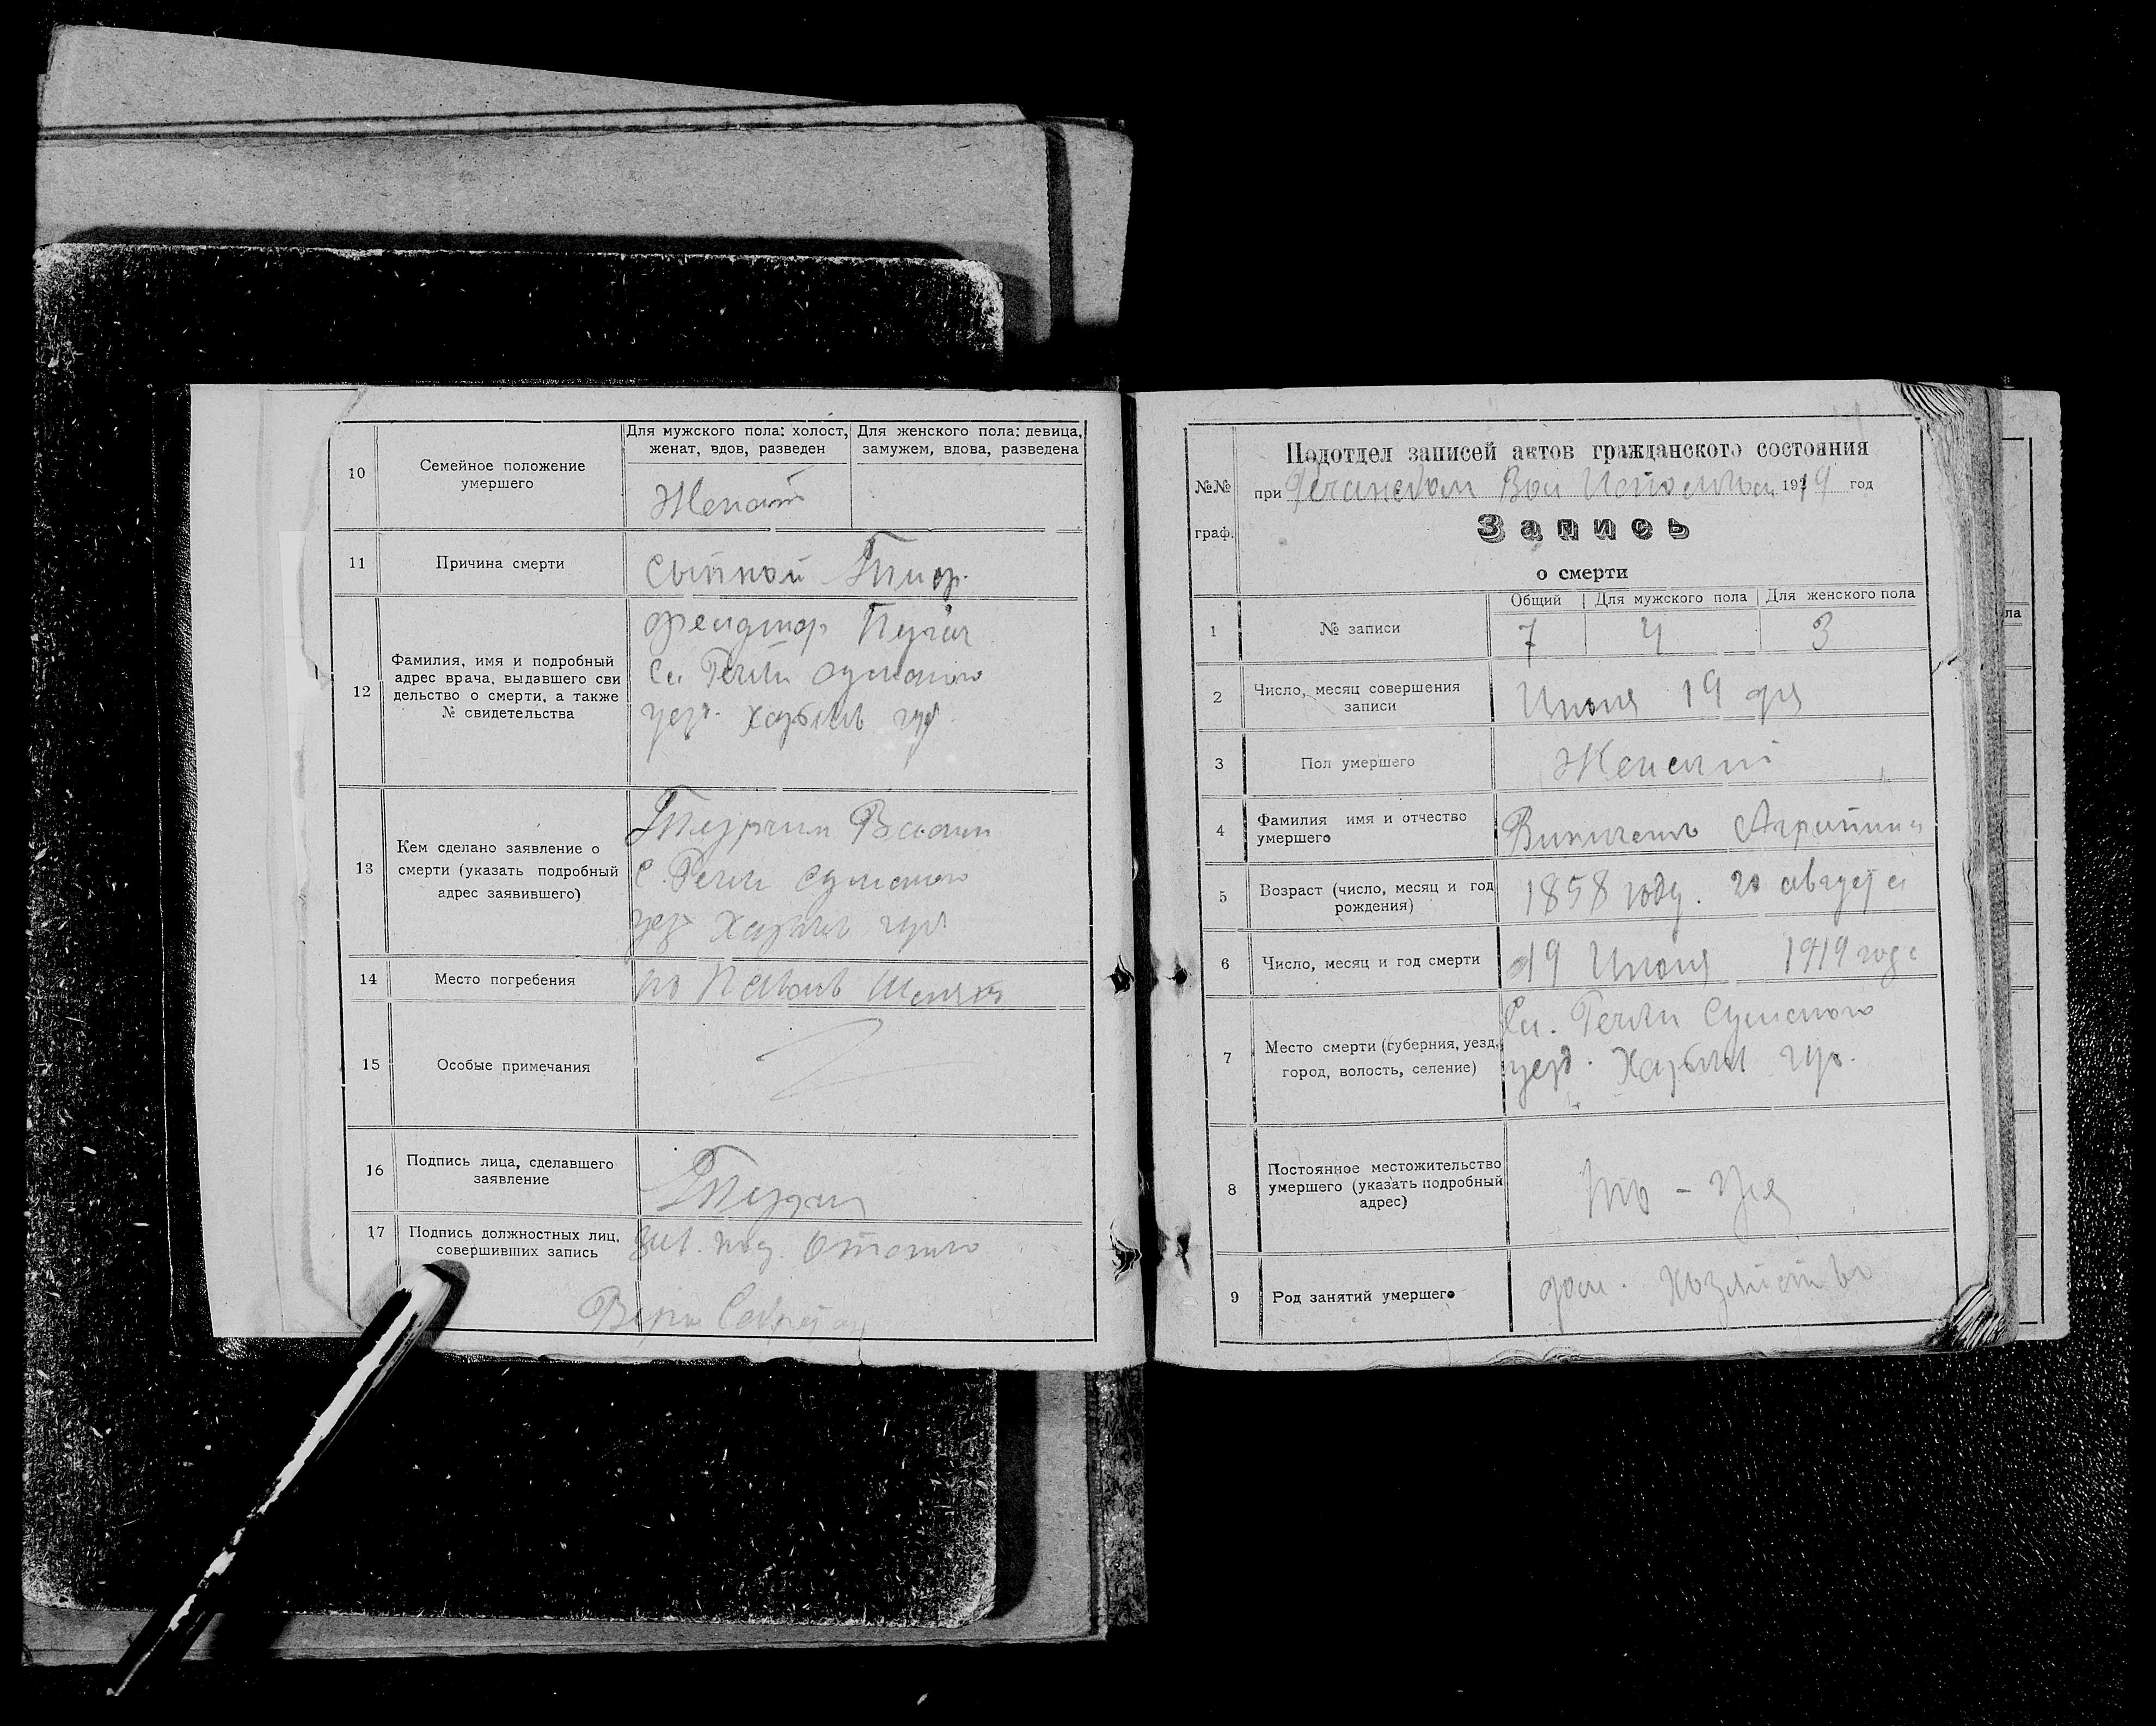 10
Семейное положение
умершего
Для мужского пола: холост,
женат, вдов, разведен
Для женского пола: девица,
замужем, вдова, разведена
Женат
11
Причина смерти
Сыпной Тиф.
12
Фамилия, имя и подробный
адрес врача, выдавшего сви
дельство о смерти, а также
№ свидетельства
Фелдшер Пугач
Сл. Речки Сумского
уезд. Харьків губ.
13
Кем сделано заявление о
смерти (указать подробный
адрес заявившего)
С. Речки Сумского
уез Харьків губ
14
Место погребения
15
Особые примечания
16
Подпись лица, сделавшего
заявление
17
Подпись должностных лиц,
совершивших запись
Зав. под. Отдела
Секретар
№№
граф.
Подотдел записей актов гражданского состояния
при Речанском Вол Исполком 1919 год
Запись
о смерти
1
№ записи
Общий
Для мужского пола
Для женского пола
7
4
3
2
Число, месяц совершения
записи
Июня 19 дня
3
Пол умершего
Женский
4
Фамилия имя и отчество
умершего
Агрипина
5
Возраст (число, месяц и год
рождения)
1858 году. 20 августа
6
Число, месяц и год смерти
19 Июня 1919 года
7
Место смерти (губерния, уезд,
город, волость, селение)
Сл. Речки Сумского
уезд. Харьків губ.
8
Постоянное местожительство
умершего (указать подробный
адрес)
9
Род занятий умершего
дом. Хозяйство
ла